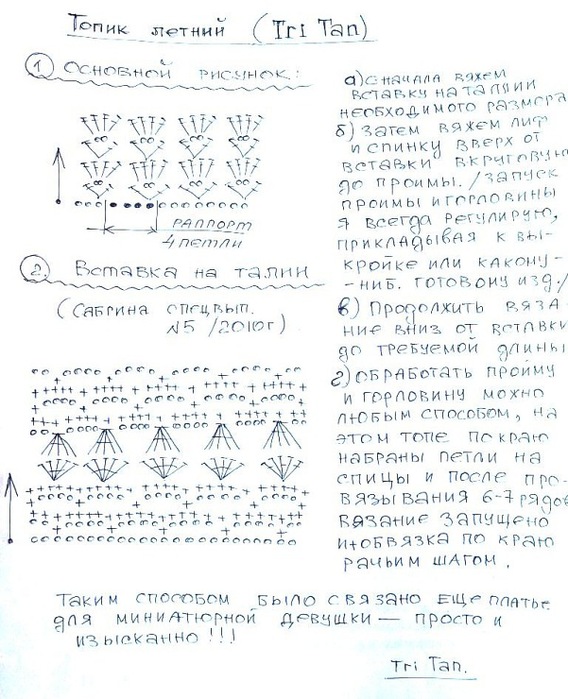 Топик летний (Tri Tan)
1. Основной рисунок:
РАППОРТ
4 петли
2. Вставка на талии
(Сабрина спецвып.
№5/2010г)
а) сначала вяжем
вставку на талии
необходимого размера
б) Затем вяжем лиф
и спинку вверх от
вставки вкруговую
до проймы. /запуск
проймы и горловины
я всегда регулирую,
прикладывая к вы-
кройке или какому-
-ниб. готовому изд./
в) Продолжить вяза-
ние вниз от вставки
до требуемой длины
г) Обработать пройму
и горловину можно
любым способом, на
этом топе по краю
набраны петли на
спицы и после про-
вязывания 6-7 рядов
вязание запущено
и+обвязка по краю
рачьим шагом.
Таким способом было связано еще платье
для миниатюрной девушки — просто и
изысканно!!!
Tri Tan.